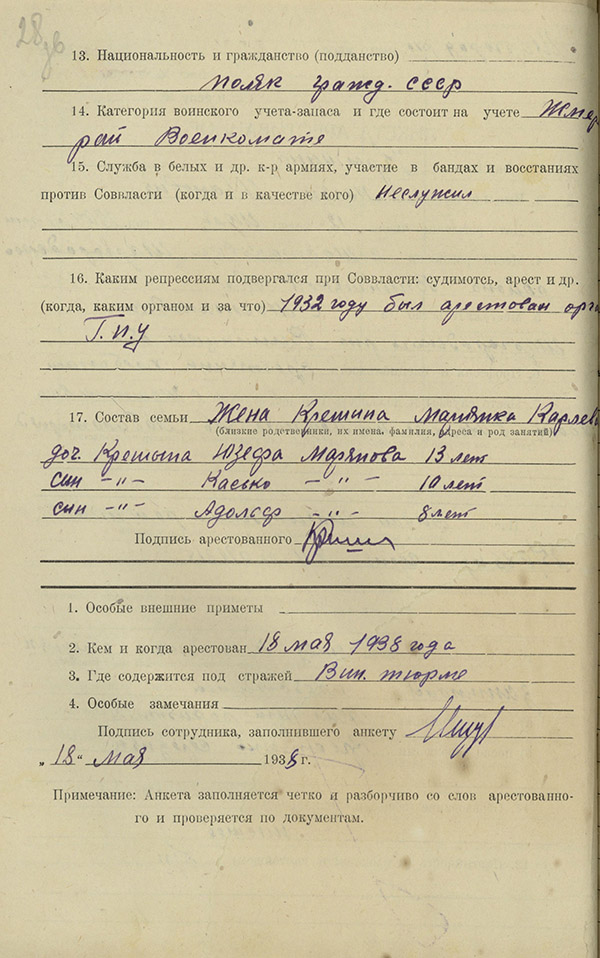 28
13. Национальность и гражданство (подданство)
поляк гражд. СССР
14. Категория воинского учета-запаса и где состоит на учете Жмер
рай Военкомате
15. Служба в белых и др. к-р армиях, участие в бандах и восстаниях
против Соввласти (когда и в качестве кого) Неслужил
16. Каким репрессиям подвергался при Соввласти: судимотсь, арест и др.
(когда, каким органом и за что) 1932 году был арестован орга
Г.П.У
17. Состав семьи Жена Крешина Карлов
(близкие родственники, их имена. фамилия, адреса и род занятий)
доч. Крешына Юзефа Марянова 13 лет
син -"- Касько -"- 10 лет
сын -"- Адольф -"- 8 лет
Подпись арестованного
1. Особые внешние приметы
2. Кем и когда арестован 18 мая 1938 года
3. Где содержится под стражей Вин. тюрме
4. Особые замечания
Подпись сотрудника, заполнившего анкету
„18" мая 1938 г.
Примечание: Анкета заполняется четко и разборчиво со слов арестованно-
го и проверяется по документам.